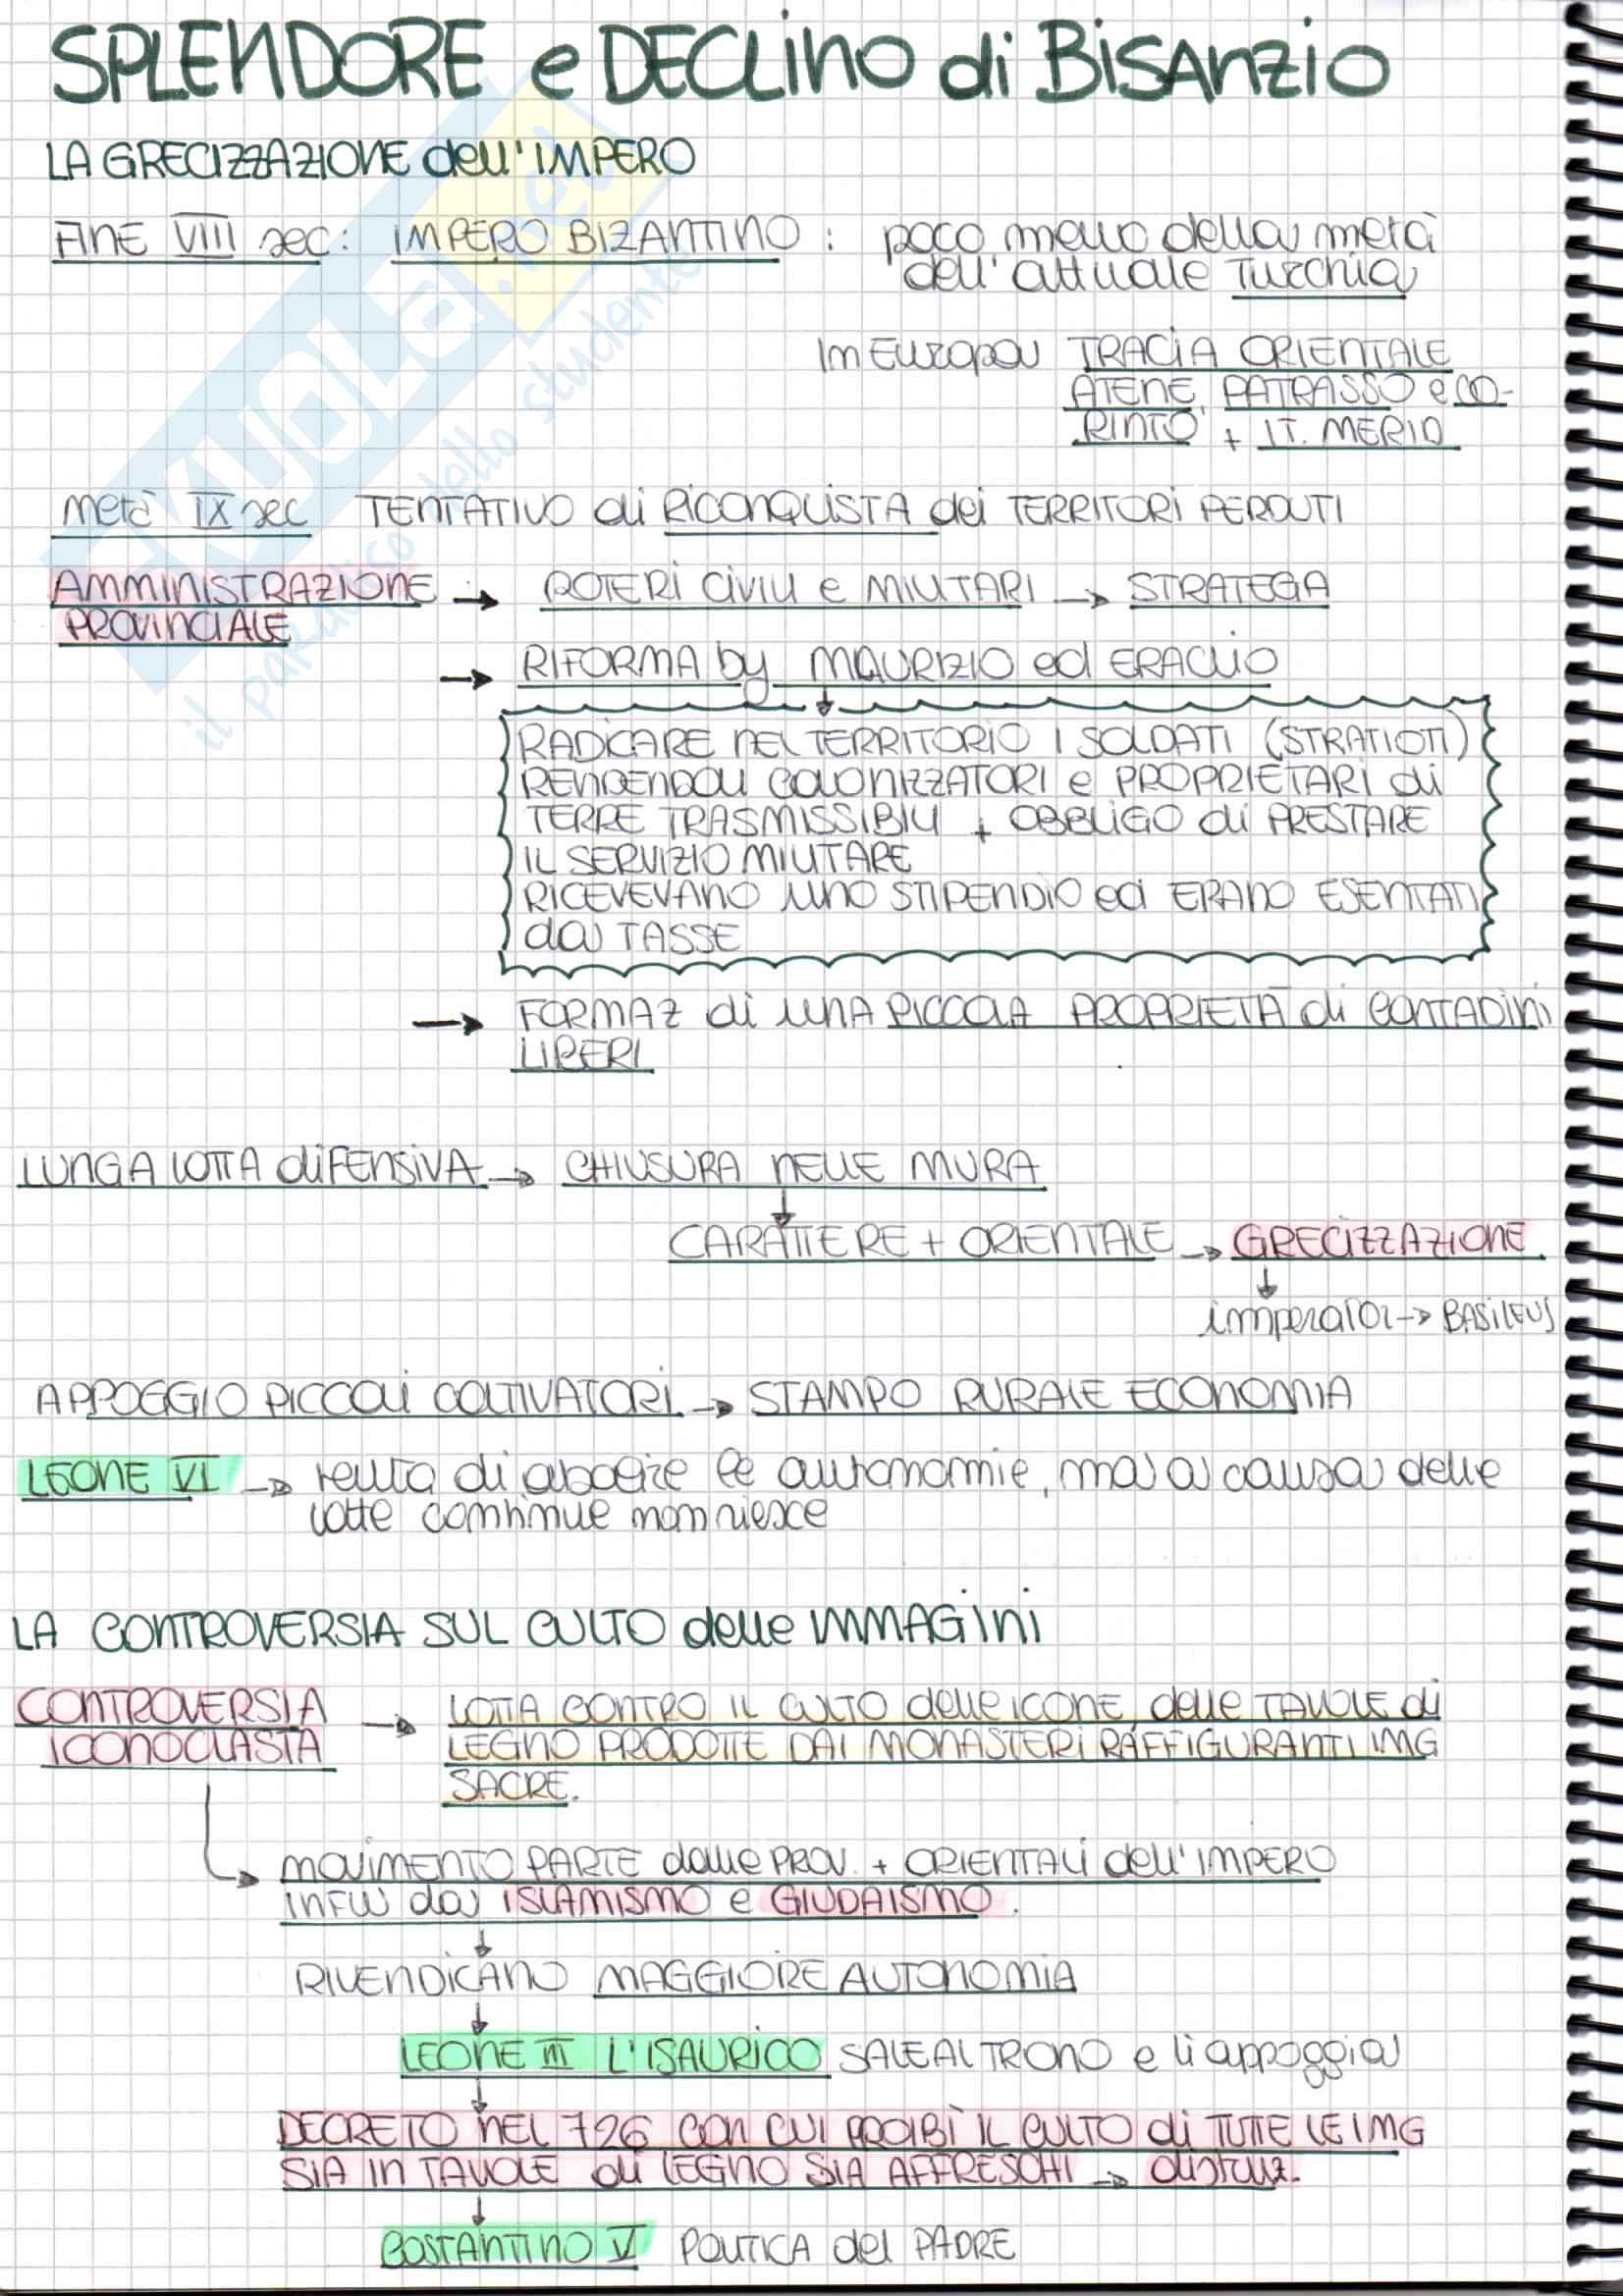 SPLENDORE e DECLINO di BISANZIO
LA GRECIZZAZIONE dell'IMPERO
FINE VIII sec: IMPERO BIZANTINO: poco meno della metà
dell'attuale Turchia
In Europa TRACIA ORIENTALE
ATENE, PATRASSO e CO-
RINTO + IT. MERID
metà IX sec TENTATIVO di RICONQUISTA dei TERRITORI PERDUTI
AMMINISTRAZIONE → POTERI CIVILI e MILITARI → STRATEGA
PROVINCIALE
→ RIFORMA by MAURIZIO ed ERACLIO
RADICARE NEL TERRITORIO I SOLDATI (STRATIOTI)
RENDENDOLI COLONIZZATORI e PROPRIETARI di
TERRE TRASMISSIBILI + OBBLIGO di PRESTARE
IL SERVIZIO MILITARE
RICEVEVANO UNO STIPENDIO ed ERANO ESENTATI
da TASSE
→ FORMAZ di UNA PICCOLA PROPRIETÀ di CONTADINI
LIBERI
LUNGA LOTTA DIFENSIVA → CHIUSURA NELLE MURA
CARATTERE + ORIENTALE → GRECIZZAZIONE
imperator → BASILEUS
APPOGGIO PICCOLI COLTIVATORI → STAMPO RURALE ECONOMIA
LEONE VI → tenta di abolire le autonomie, ma a causa delle
lotte continue non riesce
LA CONTROVERSIA SUL CULTO delle IMMAGINI
CONTROVERSIA → LOTTA CONTRO IL CULTO delle ICONE, delle TAVOLE di
ICONOCLASTA LEGNO PRODOTTE DAI MONASTERI RAFFIGURANTI IMG
SACRE.
MOVIMENTO PARTE dalle PROV. + ORIENTALI dell'IMPERO
INFLU da ISLAMISMO e GIUDAISMO.
RIVENDICANO MAGGIORE AUTONOMIA
LEONE III L'ISAURICO SALE AL TRONO e li appoggia
DECRETO NEL 726 CON CUI PROIBÌ IL CULTO di TUTTE LE IMG
SIA IN TAVOLE di LEGNO SIA AFFRESCHI → distruz.
COSTANTINO V POLITICA del PADRE
SKUOLA.net
il paradiso dello studente